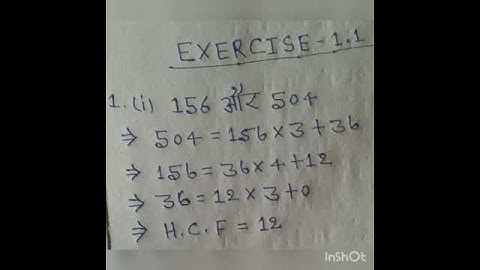 EXERCISE-1.1
1. (i) 156 और 504
⇒ 504 = 156 × 3 + 36
⇒ 156 = 36 × 4 + 12
⇒ 36 = 12 × 3 + 0
⇒ H.C.F = 12
InShOt